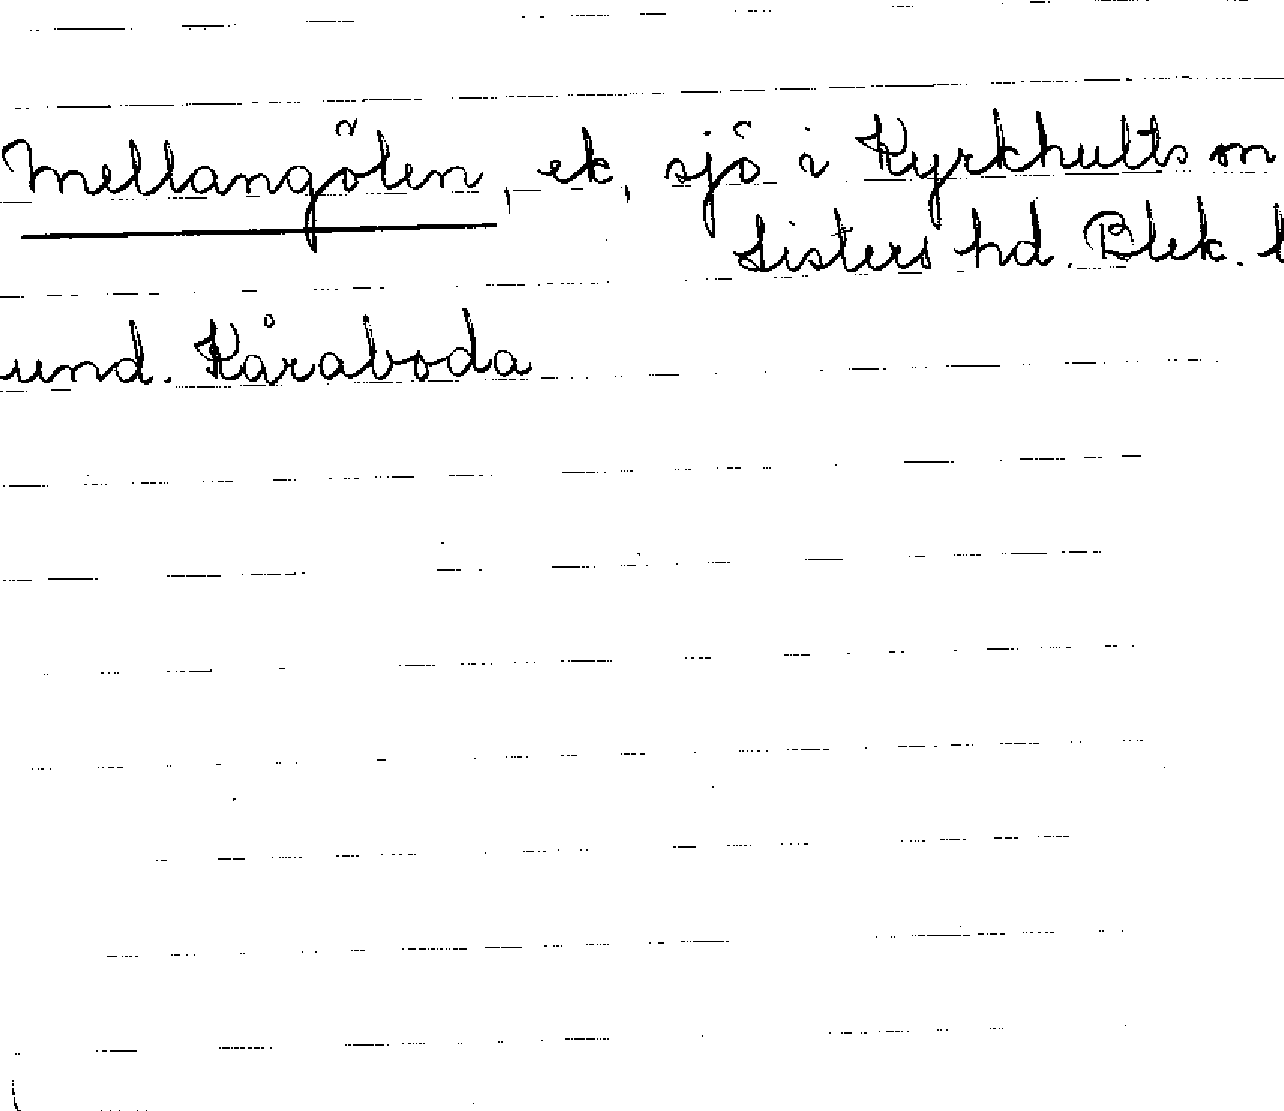 Mellangölen, ek, sjö i Kyrkhults sn
Listers hd. Blek. l
und. Kåraboda